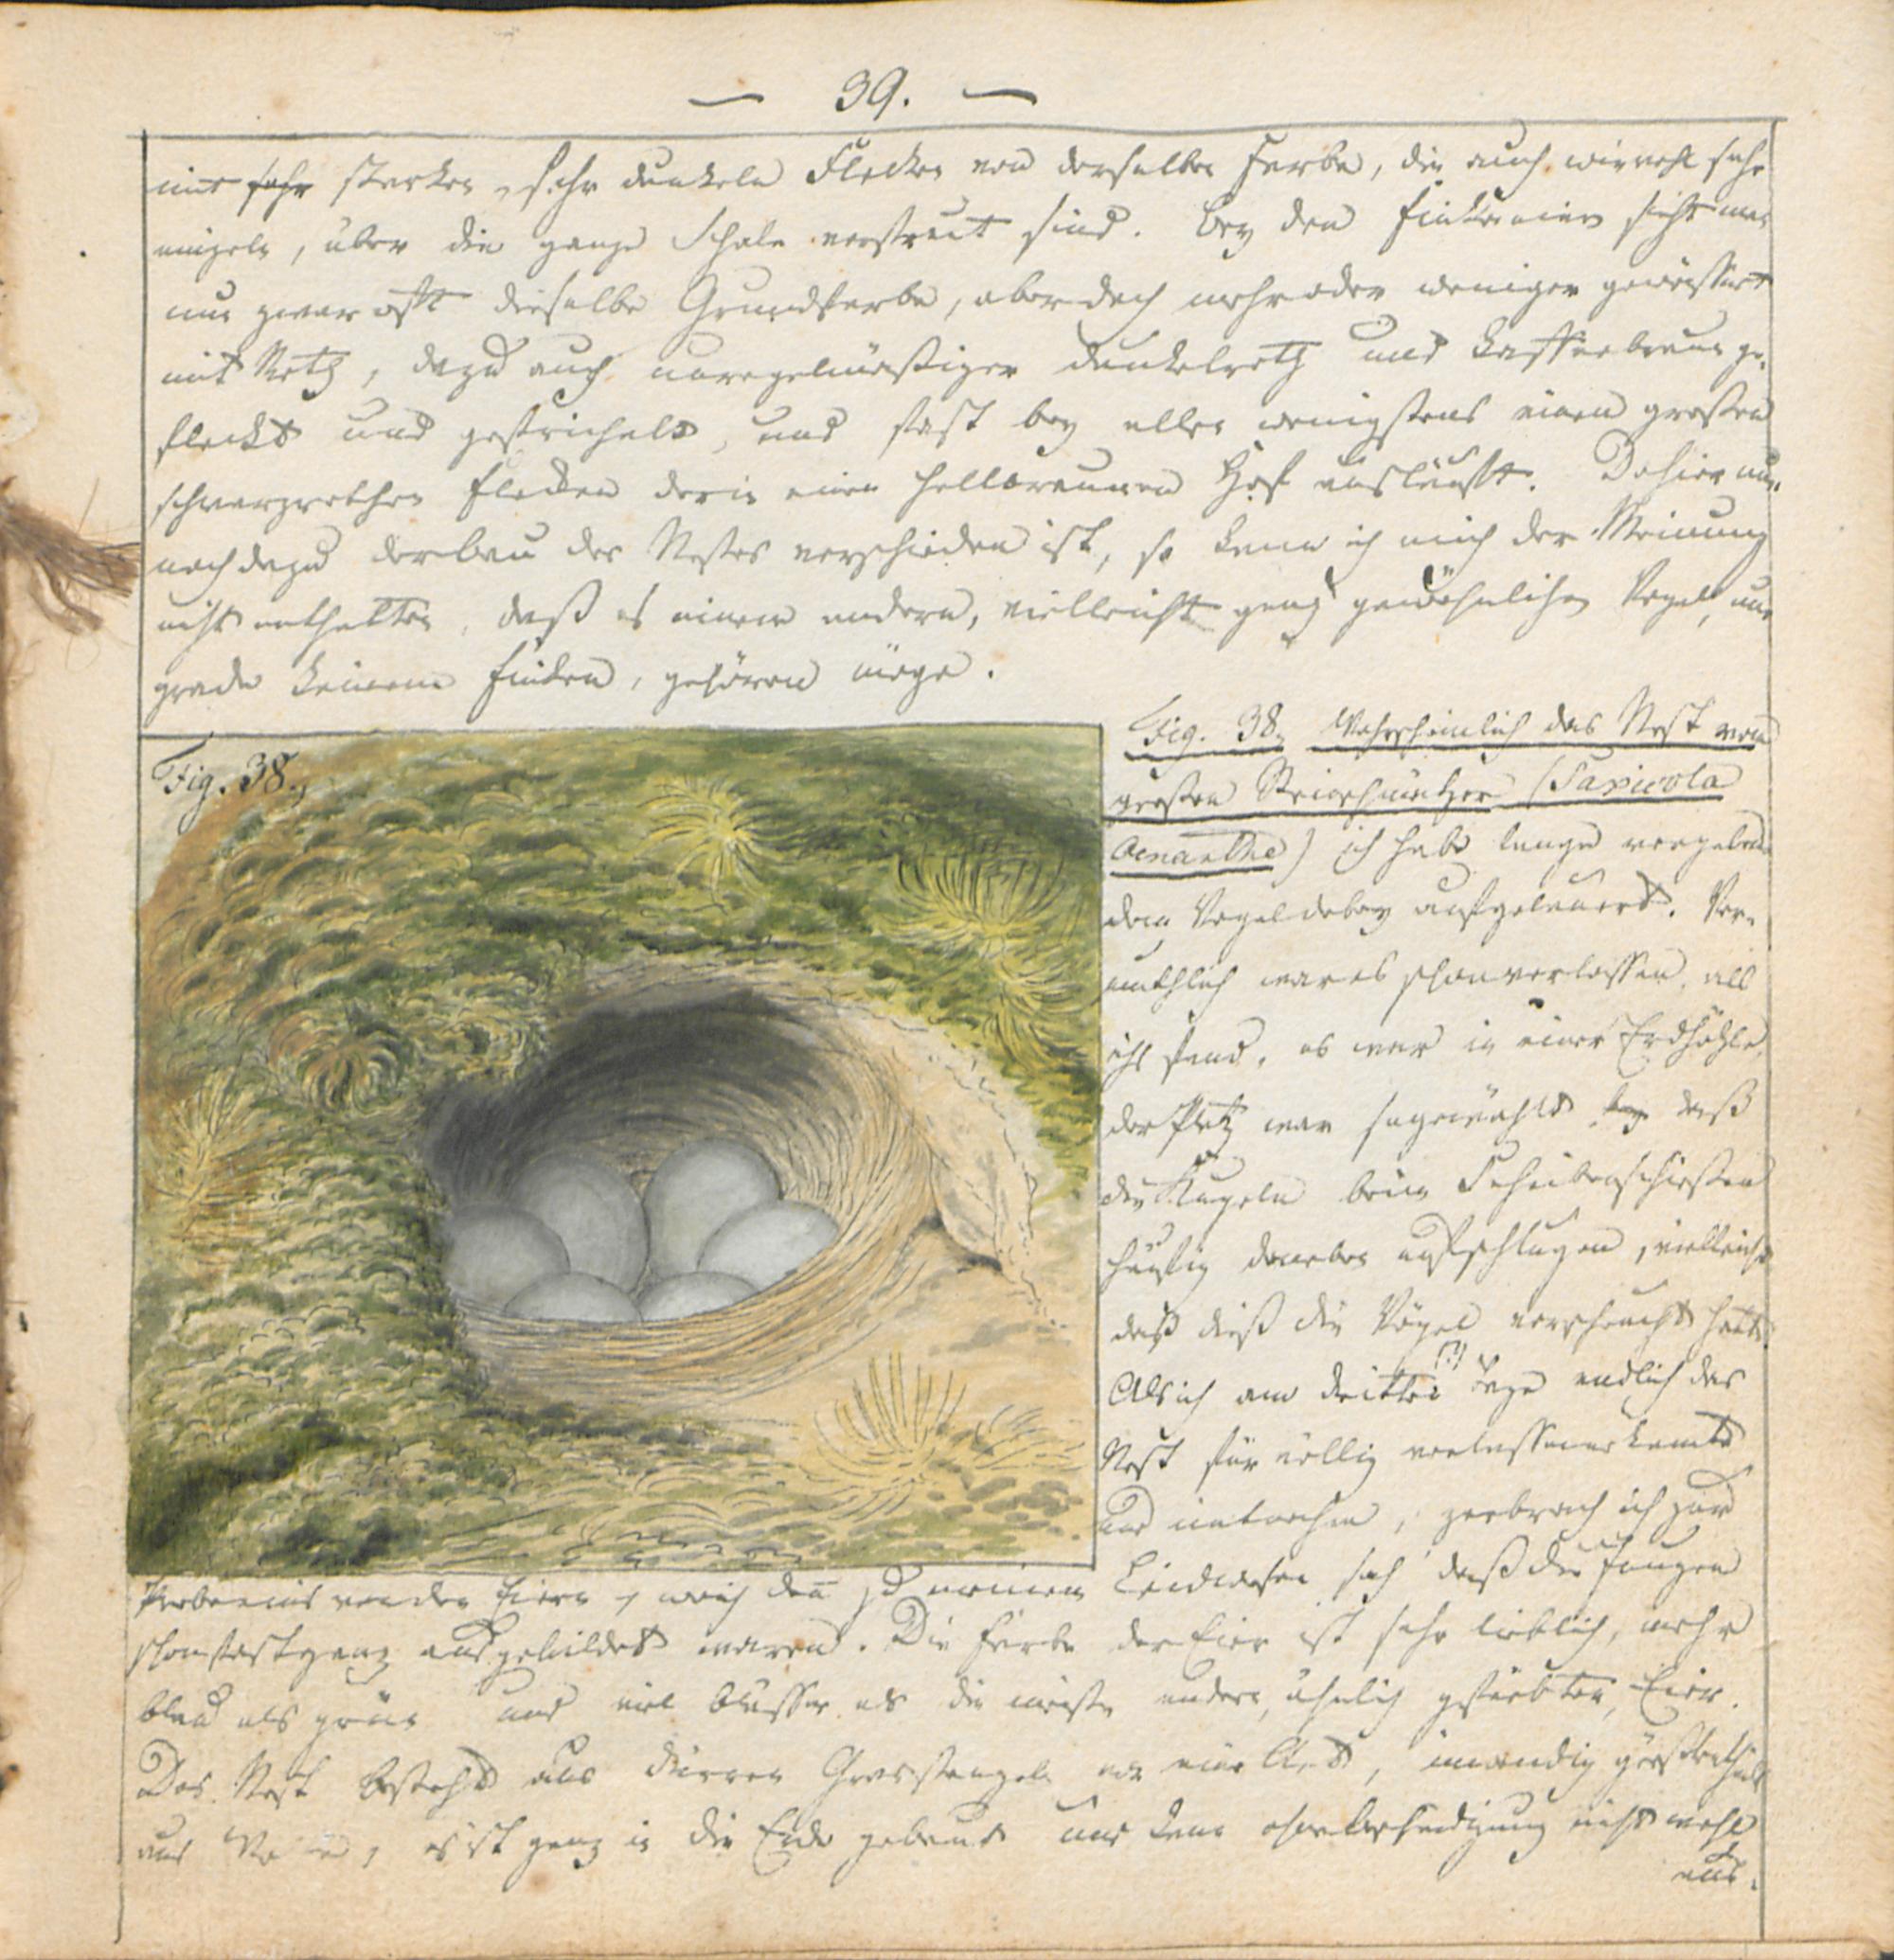 — 39. —
mit sehr starken, sehr dunkeln Flecken von derselben Farbe, die auch wiewohl sehr
einzeln, über die ganze Schale verstreut sind. Bey den Finkeneiern sieht man
nun zwar oft dieselbe Grundfarbe, aber doch mehr oder weniger gewässert
mit Roth, dazu auch unregelmäßiger dunkelroth und kaffeebraun ge-
fleckt und gestrichelt, und fast bey allen wenigstens einen großen
schwarzrothen Flecken der in einen hellbraunen Hof ausläuft. Da hier nun
noch dazu der Bau des Nestes verschieden ist, so kann ich mich der Meinung
nicht enthalten, daß es einem andern, vielleicht ganz gewöhnlichen Vogel, nur
grade keinem Finken, gehören möge.
Fig. 38.
Fig. 38. Wahrscheinlich das Nest vom
großen Steinschmätzer (Saxicola
Oenanthe) ich habe lange vergebens
dem Vogel dabey aufgelauert. Ver-
muthlich war es schon verlassen, als
ichs fand, es war in einer Erdhöhle,
der Platz war so gewählt daß
die Kugeln beim Scheibenschießen
häufig daneben aufschlugen, vielleicht
daß dieß die Vögel verscheucht hatte.
Als ich am dritten (?) Tage endlich das
Nest für völlig verlassen erkannte
und mitnahm, zerbrach ich zwei
von den Eiern, und zu meinem Leidwesen sah daß die Jungen
schon fast ganz ausgebildet waren. Die Farbe der Eier ist sehr lieblich, mehr
blau als grün und viel blasser als die meisten andern, ähnlich gefärbten, Eier.
Das Nest besteht aus dürren Grasstengeln von einer Art, inwendig größtentheils
aus es ist ganz in die Erde gebaut und kann ohne Beschädigung nicht wohl
aus.